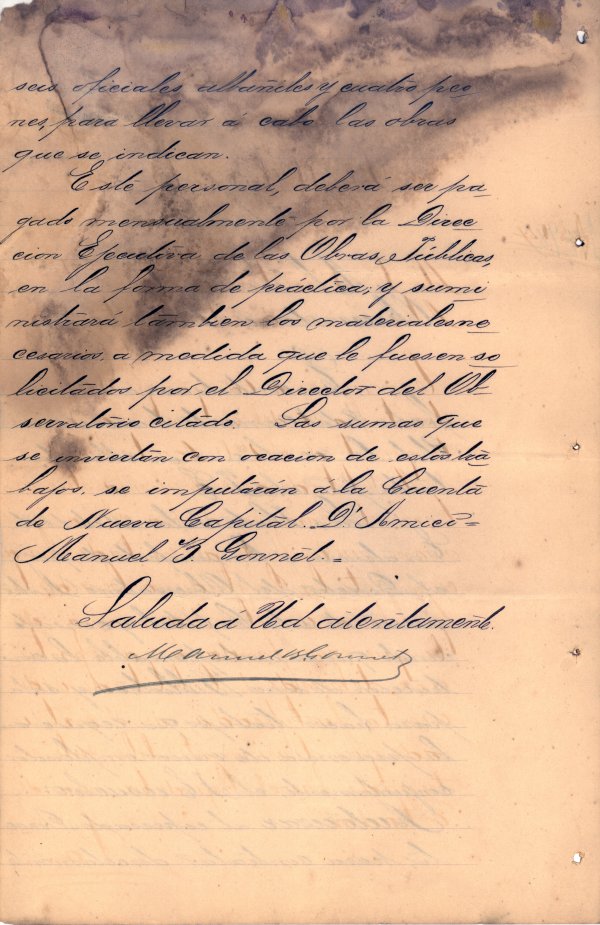 seis oficiales albañiles y cuatro peo
nes, para llevar á cabo las obras
que se indican.
Este personal, deberá ser pa
gado mensualmente por la Direc
cion Ejecutiva de las Obras Públicas,
en la forma de práctica; y sumi
nistrará tambien los materiales ne
cesarios a medida que le fuesen so
licitados por el Director del Ob-
servatorio citado. Las sumas que
se inviertan con ocacion de estos tra
bajos, se imputarán á la Cuenta
de Nueva Capital. D'Amico=
Manuel B. Gonnet.=
Saluda á Ud. atentamente.
Manuel B Gonnet